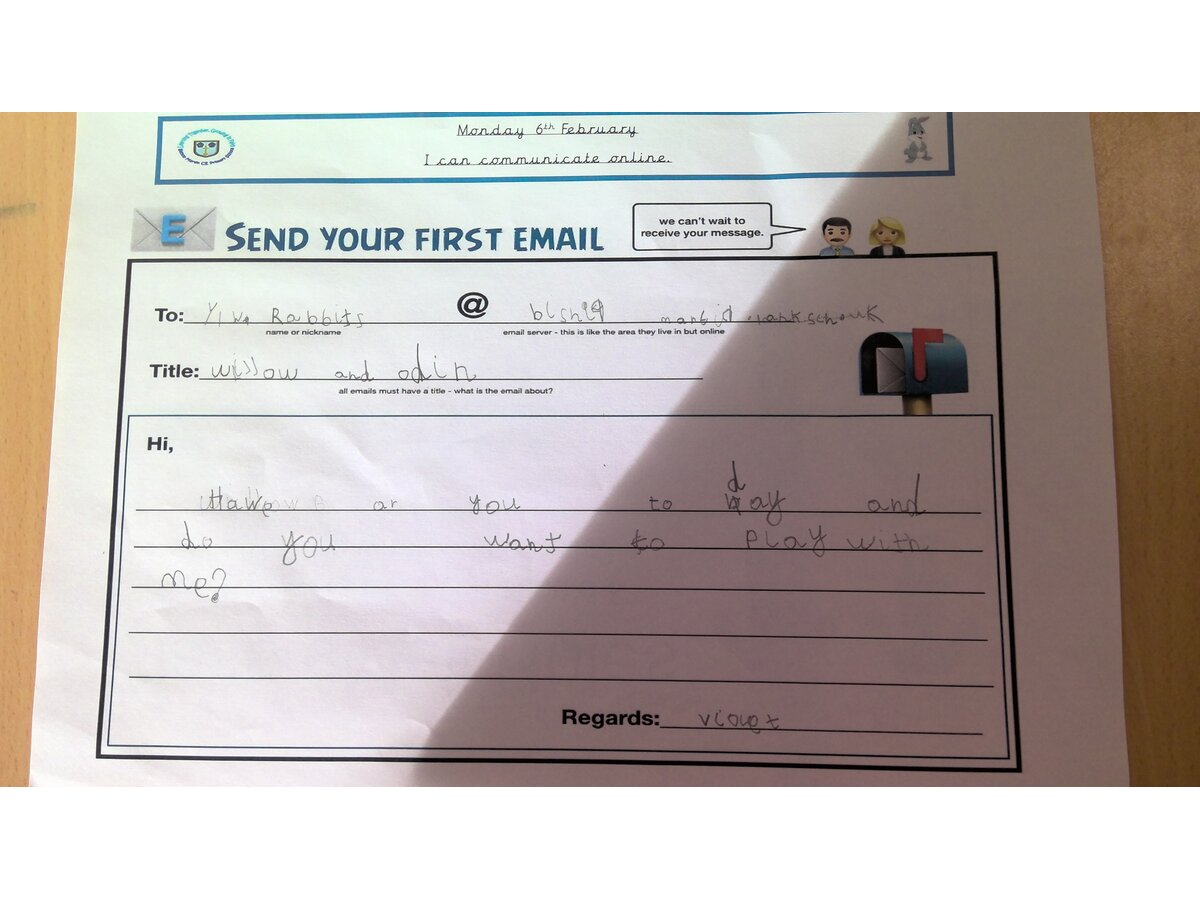 Monday 6th February
I can communicate online.
E
SEND YOUR FIRST EMAIL
we can't wait to
receive your message.
To: Rabbits @
name or nickname
email server - this is like the area they live in but online
Title: willow and odin
all emails must have a title - what is the email about?
Hi,
ar you to day and
do you want to play with
me?
Regards: